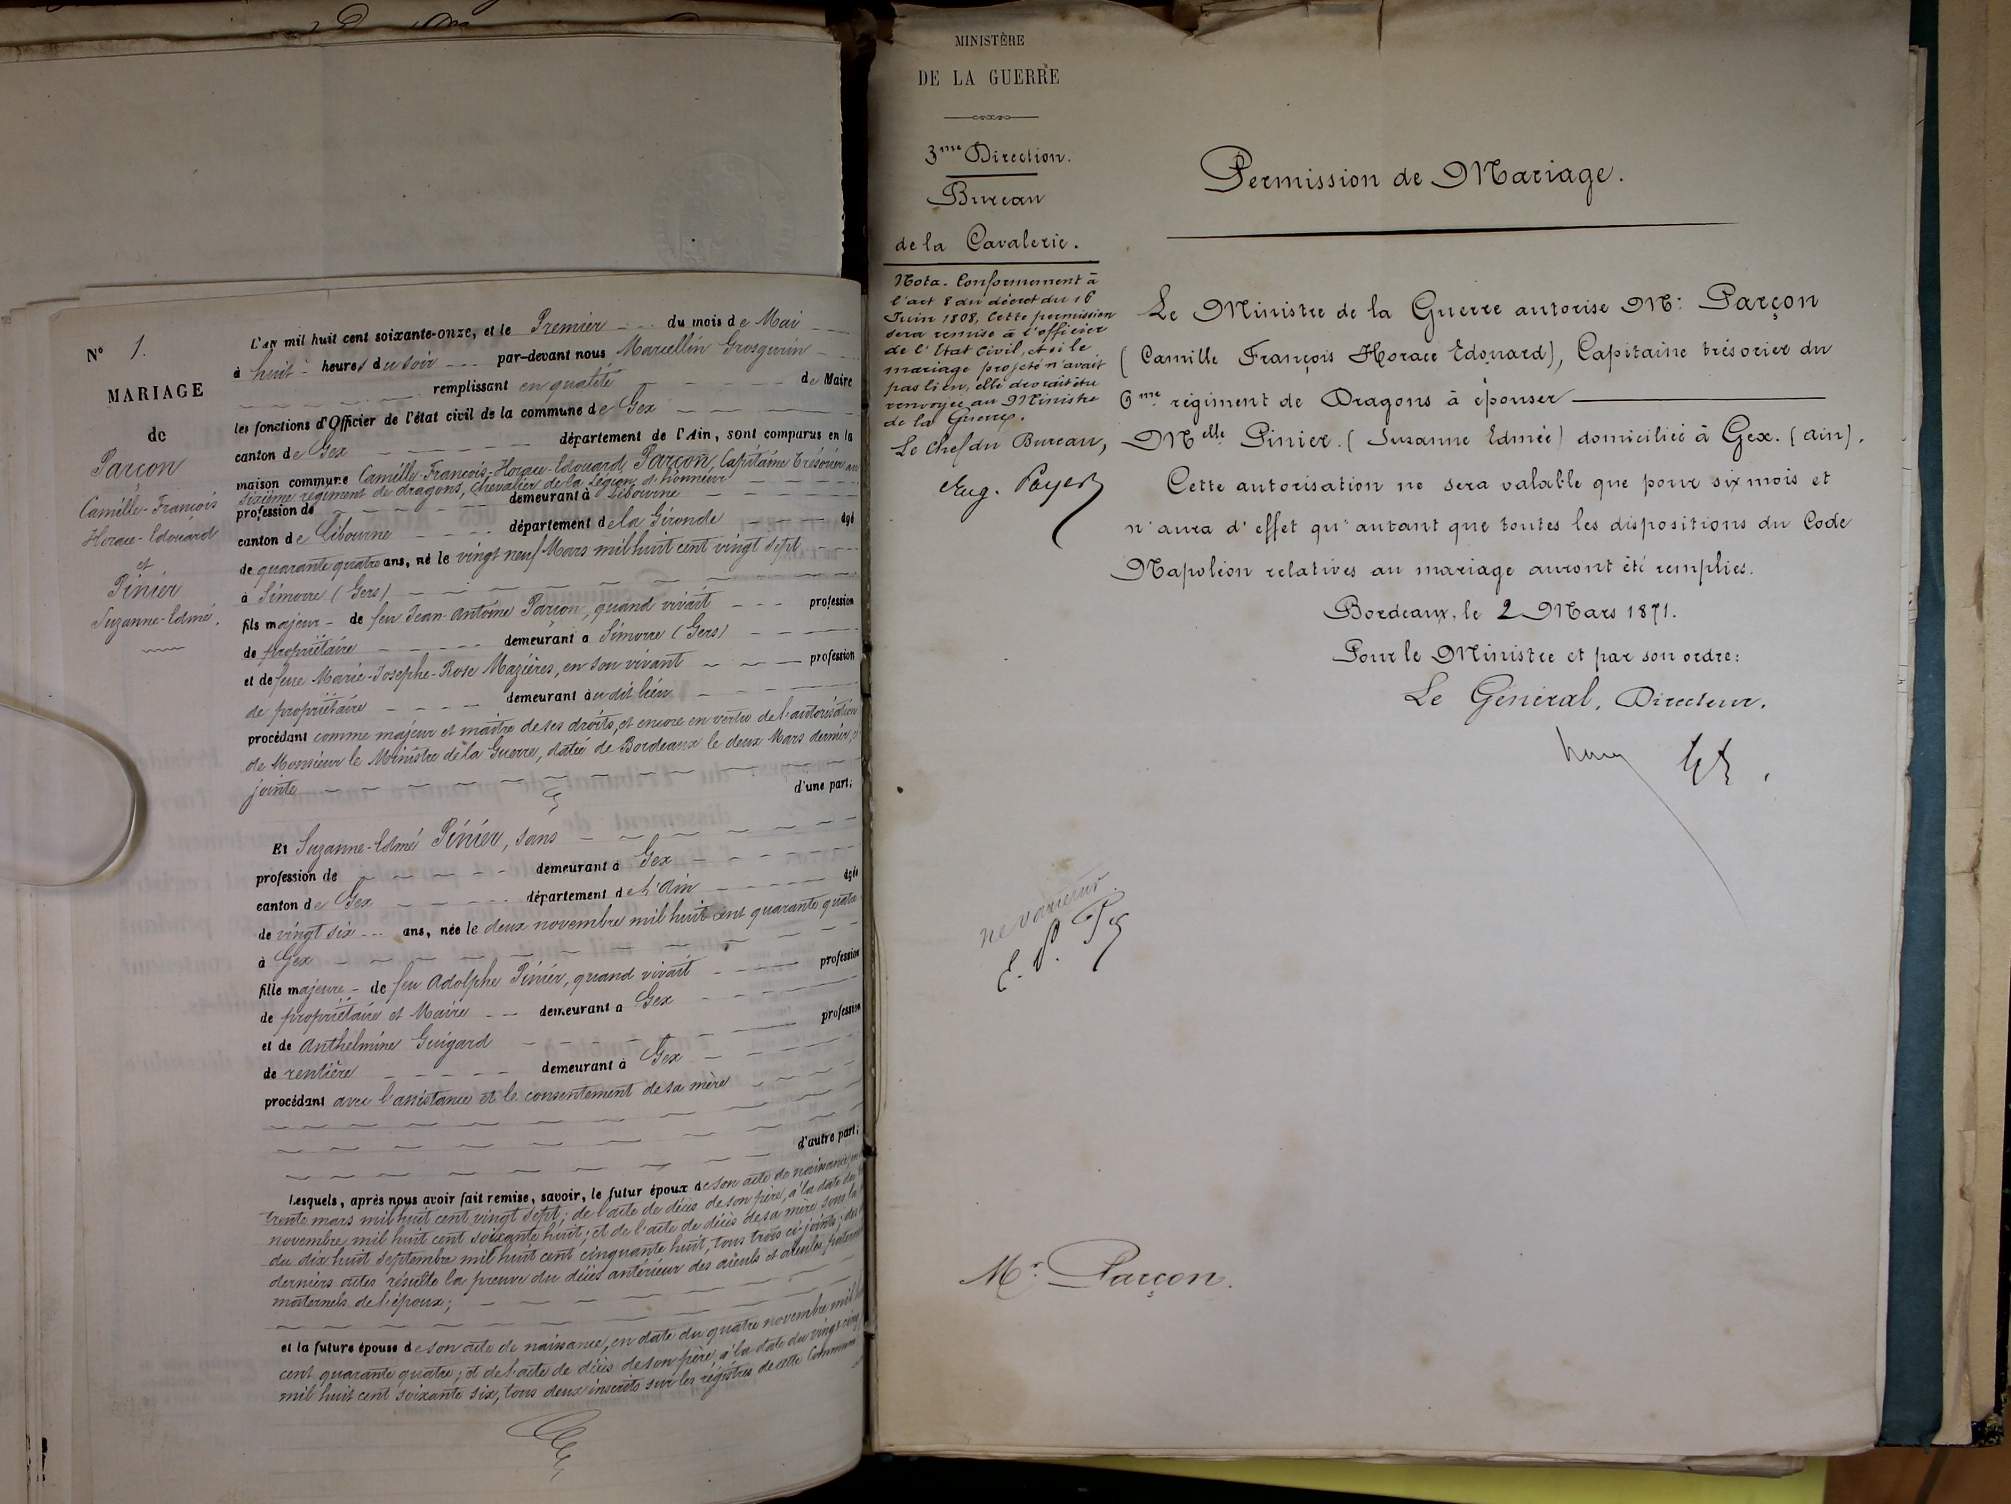 N° 1.
MARIAGE
de
Parçon
Camille-François
Horace-Edouard
et
Pinier
Suzanne-Edmé.
L'an mil huit cent soixante-onze, et le Premier du mois de Mai
à huit heures du soir par-devant nous Marcellin Grosgurin
remplissant en qualité de Maire
les fonctions d'Officier de l'état civil de la commune de Gex
canton de Gex département de l'Ain, sont comparus en la
maison commune Camille-François-Horace-Edouard Parçon, Capitaine trésorier au
sixième régiment de dragons, Chevalier de la Légion d'honneur
profession de demeurant à Libourne
canton de Libourne département de la Gironde âgé
de quarante quatre ans, né le vingt neuf Mars mil huit cent vingt sept
à Simorre (Gers)
fils majeur de feu Jean-Antoine Parçon, quand vivait profession
de propriétaire demeurant à Simorre (Gers)
et de feue Marie-Josephe-Rose Mazières, en son vivant profession
de propriétaire demeurant audit lieu
procédant comme majeur et maître de ses droits, et encore en vertu de l'autorisation
de Monsieur le Ministre de la Guerre, datée de Bordeaux le deux Mars dernier, ci
jointe d'une part;
Et Suzanne-Edmé Pinier, sans
profession de demeurant à Gex
canton de Gex département de l'Ain âgée
de vingt six ans, née le deux novembre mil huit cent quarante quatre
à Gex
fille majeure de feu Adolphe Pinier, quand vivait profession
de propriétaire et Maire demeurant à Gex
et de Anthelmine Guigard profession
de rentière demeurant à Gex
procédant avec l'assistance et le consentement de sa mère
d'autre part;
Lesquels, après nous avoir fait remise, savoir, le futur époux de son acte de naissance, en
trente mars mil huit cent vingt sept; de l'acte de décès de son père, à la date du
novembre mil huit cent soixante huit; et de l'acte de décès de sa mère sous la
du dix huit septembre mil huit cent cinquante huit, tous trois ci-joints; des
derniers actes résulte la preuve du décès antérieur des aïeuls et aïeules paternels
maternels de l'époux;
et la future épouse de son acte de naissance, en date du quatre novembre mil
cent quarante quatre; et de l'acte de décès de son père, à la date du vingt cinq
mil huit cent soixante six, tous deux inscrits sur les régistres de cette Commune
MINISTÈRE
DE LA GUERRE
3me Direction.
Bureau
de la Cavalerie.
Nota. Conformément à
l'art 8 du décret du 16
Juin 1808, Cette permission
sera remise à l'officier
de l'Etat Civil, et si le
mariage projeté n'avait
pas lieu, elle devrait être
renvoyée au Ministre
de la Guerre.
Le Chef du Bureau,
Eug. Payer
Permission de Mariage.
Le Ministre de la Guerre autorise Mr. Parçon
(Camille François Horace Edouard), Capitaine trésorier du
6me régiment de Dragons à épouser
Melle Pinier. (Suzanne Edmée) domiciliée à Gex. (Ain).
Cette autorisation ne sera valable que pour six mois et
n'aura d'effet qu'autant que toutes les dispositions du Code
Napoléon relatives au mariage auront été remplies.
Bordeaux, le 2 Mars 1871.
Pour le Ministre et par son ordre:
Le Général, Directeur.
ne varietur
Mr. Parçon.